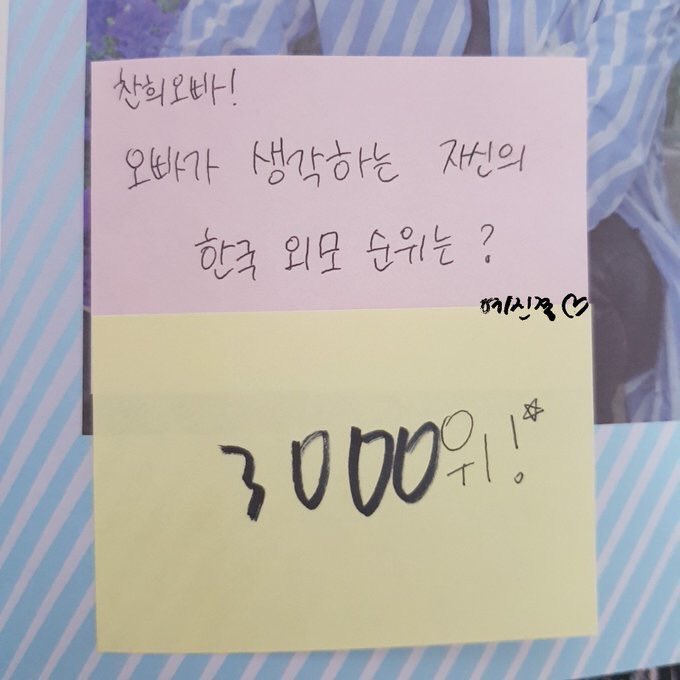 찬희오빠!
오빠가 생각하는 자신의
한국 외모 순위는?
3000위!